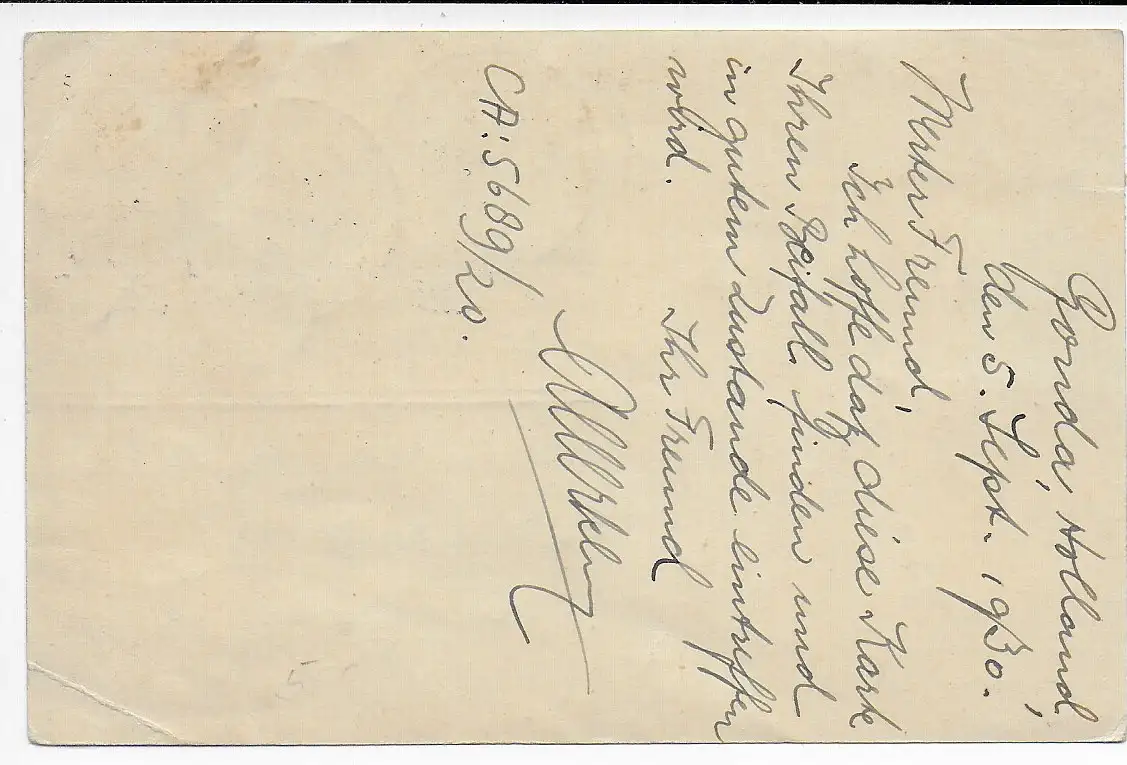 Gouda, Holland,
den 5. Sept. 1930.
Werter Freund,
Ich hoffe daß diese Karte
Ihren Beifall finden und
in gutem Zustande eintreffen
wird.
Ihr Freund
CA: 5689/20.